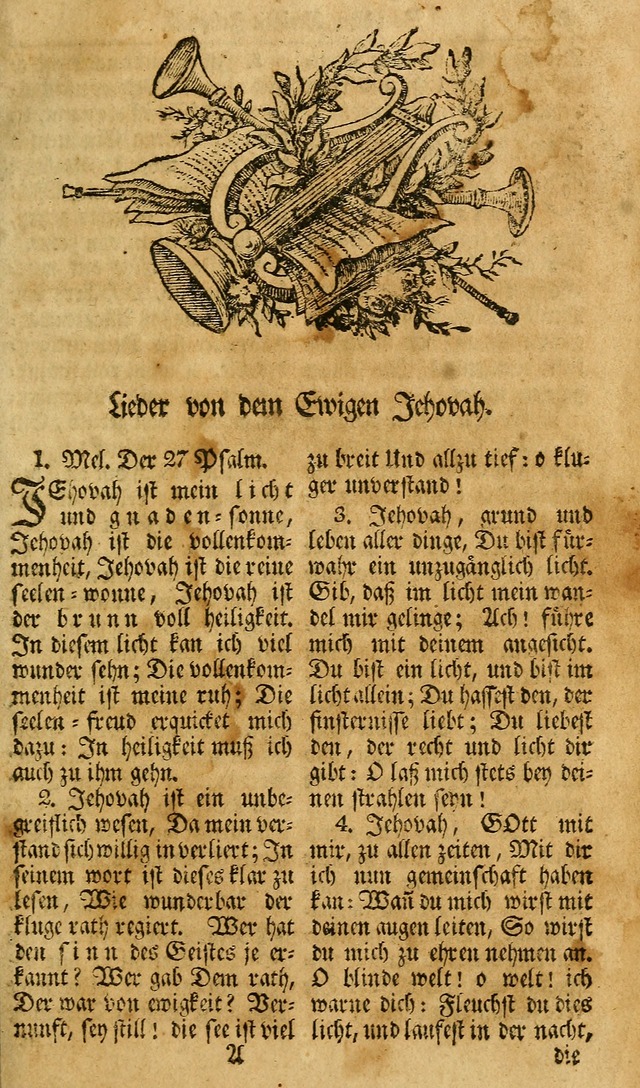 Lieder von dem Ewigen Jehovah.
1. Mel. Der 27 Psalm.
JEhovah ist mein licht
und gnaden-sonne,
Jehovah ist die vollenkom-
menheit, Jehovah ist die reine
seelen-wonne, Jehovah ist
der brunn voll heiligkeit.
In diesem licht kan ich viel
wunder sehn; Die vollenkom-
menheit ist meine ruh; Die
seelen-freud erquicket mich
dazu: In heiligkeit muß ich
auch zu ihm gehn.
2. Jehovah ist ein unbe-
greiflich wesen, Da mein ver-
stand sich willig in verliert; In
seinem wort ist dieses klar zu
lesen, Wie wunderbar der
kluge rath regiert. Wer hat
den sinn des Geistes je er-
kannt? Wer gab Dem rath,
Der war von ewigkeit? Ver-
nunft, sey still! die see ist viel
zu breit Und allzu tief: o klu-
ger unverstand!
3. Jehovah, grund und
leben aller dinge, Du bist für-
wahr ein unzugånglich licht.
Gib, daß im licht mein wan-
del mir gelinge; Ach! führe
mich mit deinem angesicht.
Du bist ein licht, und bist im
licht allein; Du hassest den, der
finsternisse liebt; Du liebest
den, der recht und licht dir
gibt: O laß mich stets bey dei-
nen strahlen seyn!
4. Jehovah, GOtt mit
mir, zu allen zeiten, Mit dir
ich nun gemeinschaft haben
kan: Wañ du mich wirst mit
deinen augen leiten, So wirst
du mich zu ehren nehmen an.
O blinde welt! o welt! ich
warne dich: Fleuchst du dies
licht, und laufest in der nacht,
A
die